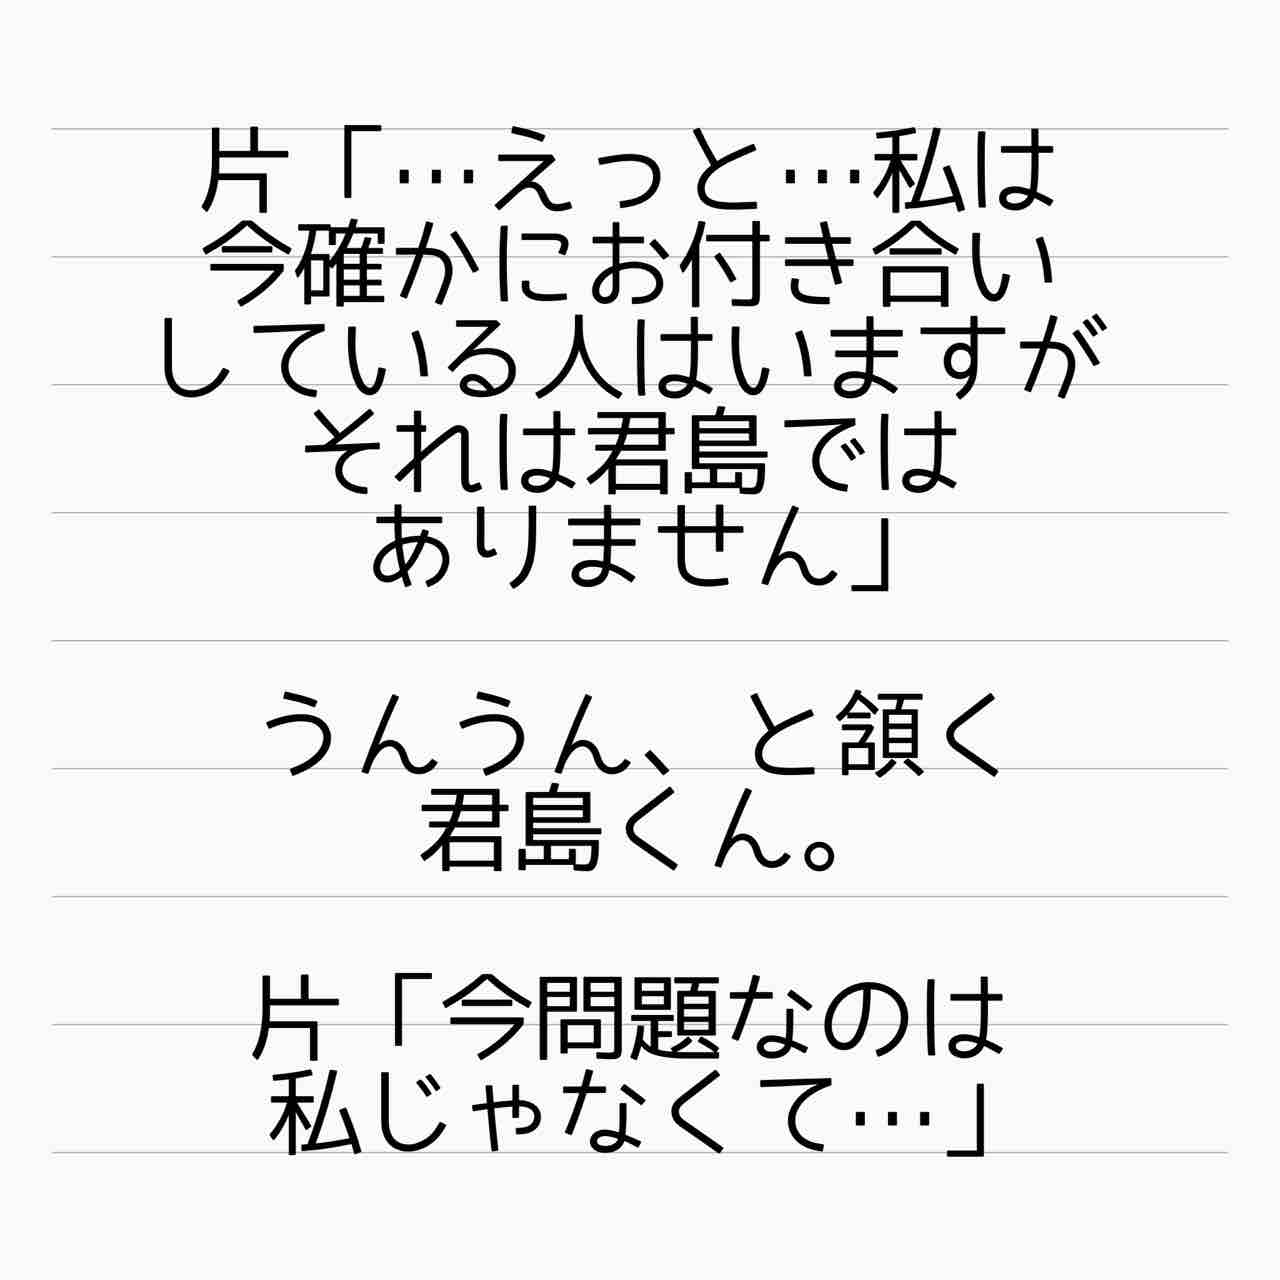 片「…えっと…私は
今確かにお付き合い
している人はいますが
それは君島では
ありません」
うんうん、と頷く
君島くん。
片「今問題なのは
私じゃなくて…」